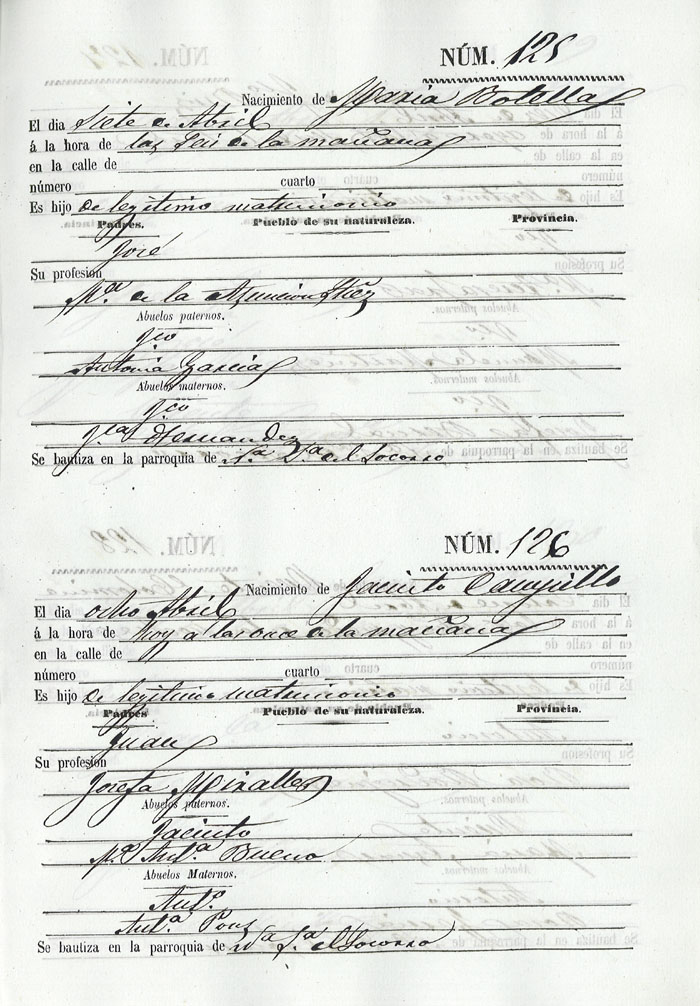 NÚM. 125
Nacimiento de Maria Botella
El dia Siete de Abril
á la hora de las Seis de la mañana
en la calle de
número cuarto
Es hijo de legítimo matrimonio
Padres. Pueblo de su naturaleza. Provincia.
José
Su profesión
Mª de la Asuncion
Abuelos paternos.
Fco
Antonia Garcia
Abuelos maternos.
Fco
Hernandez
Se bautiza en la parroquia de Nª Sª del Socorro
NÚM. 126
Nacimiento de Jacinto Campillo
El dia ocho Abril
á la hora de hoy a las once de la mañana
en la calle de
número cuarto
Es hijo de legitimo matrimonio
Padres Pueblo de su naturaleza. Provincia.
Juan
Su profesión
Josefa Miralles
Abuelos paternos.
Jacinto
Mª Antª Bueno
Abuelos Maternos.
Antº
Antª Pons
Se bautiza en la parroquia de Nª Sª del Socorro